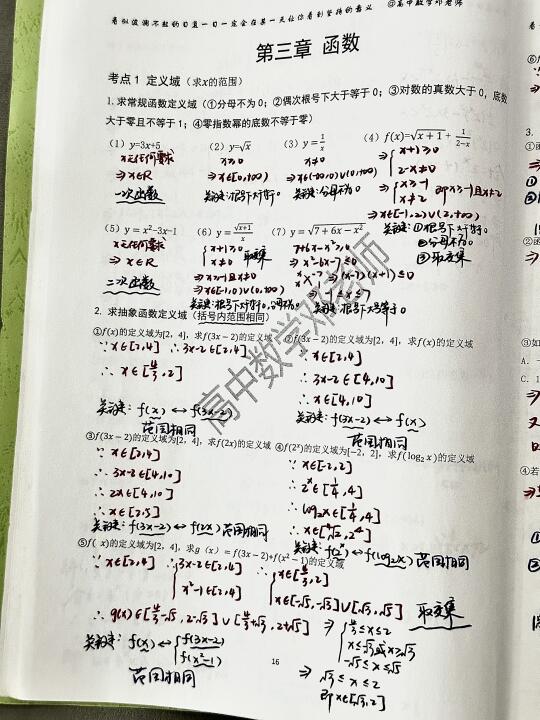 看似波澜不惊的日复一日一定会在某一天让你看到坚持的意义 @高中数学邓老师
第三章 函数
考点1 定义域（求x的范围）
1. 求常规函数定义域（①分母不为0；②偶次根号下大于等于0；③对数的真数大于0，底数
大于零且不等于1；④零指数幂的底数不等于零）
（1）y=3x+5 （2）y=√x （3）y=1/x （4）f(x)=√(x+1)+1/(2−x)
x无任何要求 x≥0 x≠0 {x+1≥0
⇒x∈R ⇒x∈[0,+∞) ⇒x∈(-∞,0)∪(0,+∞) 2-x≠0
一次函数 关键:根号下大于等于0 关键:分母不为0 ⇒{x≥-1 x≠2 即x≥-1且x≠2
⇒x∈[-1,2)∪(2,+∞)
（5）y=x²−3x−1 （6）y=√(x+1)/x （7）y=√(7+6x−x²) 关键:①根号下大于等于0
x无任何要求 {x+1≥0 x≠0 取交集 7+6x-x²≥0 ②分母不为0
⇒x∈R ⇒x≥-1且x≠0 ⇒x²-6x-7≤0 ③取交集
二次函数 ⇒x∈[-1,0)∪(0,+∞) ⇒(x-7)(x+1)≤0
关键:根号下大于等于0,分母不为0 ⇒-1≤x≤7
关键:根号下大于等于0
2. 求抽象函数定义域（括号内范围相同）
①f(x)的定义域为[2，4]，求f(3x−2)的定义域 ②f(3x−2)的定义域为[2，4]，求f(x)的定义域
∵x∈[2,4] ∴3x-2∈[2,4] ∵x∈[2,4]
∴x∈[4/3,2] ∴3x-2∈[4,10]
∴x∈[4,10]
关键:f(x)↔f(3x-2) 关键:f(3x-2)↔f(x)
范围相同 范围相同
③f(3x−2)的定义域为[2，4]，求f(2x)的定义域 ④f(2ˣ)的定义域为[−2，2]，求f(log₂x)的定义域
∵x∈[2,4] ∵x∈[-2,2]
∴3x-2∈[4,10] ∴2ˣ∈[1/4,4]
∴2x∈[4,10] ∴log₂x∈[1/4,4]
∴x∈[2,5] ∴x∈[⁴√2,2⁴]
关键:f(3x-2)↔f(2x) 范围相同 关键:f(2ˣ)↔f(log₂x) 范围相同
⑤f(x)的定义域为[2，4]，求g（x）=f(3x−2)+f(x²−1)的定义域
∵x∈[2,4] ∴{3x-2∈[2,4] ∴{x∈[4/3,2]
x²-1∈[2,4] x∈[-√5,-√3]∪[√3,√5]
取交集
⇒{4/3≤x≤2
关键:f(x)↔{f(3x-2) x≤-√3或x≥√3
f(x²-1) -√5≤x≤√5
范围相同 ⇒√3≤x≤2
即x∈[√3,2]
16